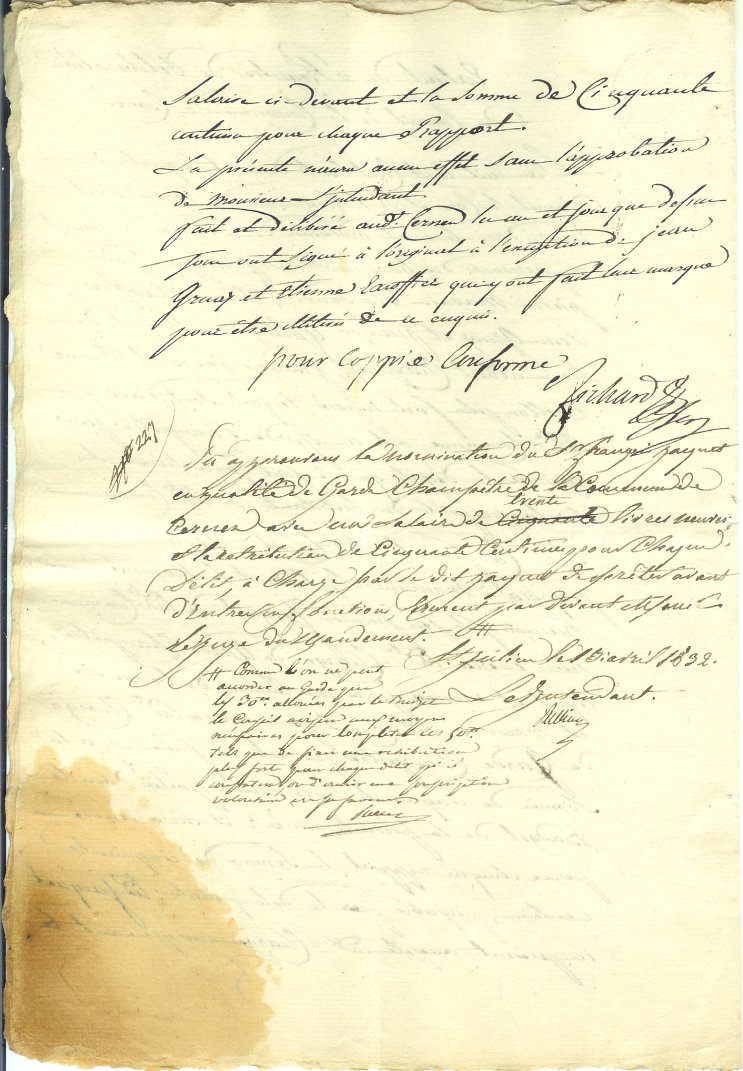 Salaire ci devant et la somme de Cinquante
centime pour chaque Rapport.
La présente n'aura aucun effet sans l'approbation
de monsieur l'jntendant
fait et délibéré aud.t Cernex les an et jour que dessus
Tous ont signé à l'original à l'exception de jean
et Etienne qui y ont fait leur marque
pour être illitirés de ce enquis.
pour Coppie Conforme
Richard
N° 227
approuvons la Nomination du Sr françois jacquet
en qualité de Garde Champêtre de la Commune de
trente
Cernex avec un Salaire de Cinquante Livres neuves
et la rétribution de Cinquante Centimes pour Chaque
Délit, à Charge par le dit jacquet de prêter avant
d'Entrer en fonction, Serment par devant
le Juge du Mandement. #
St Julien le avril 1832.
# Comme l'on ne peut
accorder au Garde que
les 30 allouées par le Budget
le Conseil avisera aux moyens
nécessaires pour Completter les 50
tels que de fixer une rétribution
plus forte pour chaque délit
ou d'ouvrir une souscription
volontaire en sa faveur.
Le Intendant.